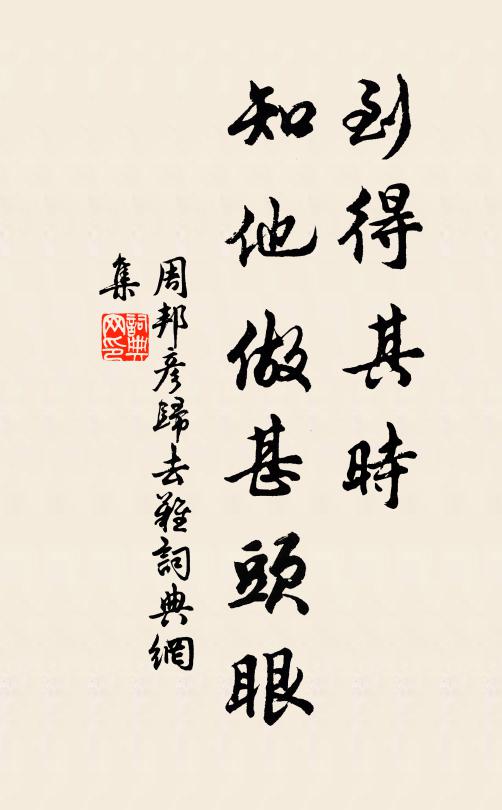 到得其時
知他做甚頭眼
周邦彦歸去難詞典網
集
詞典網印